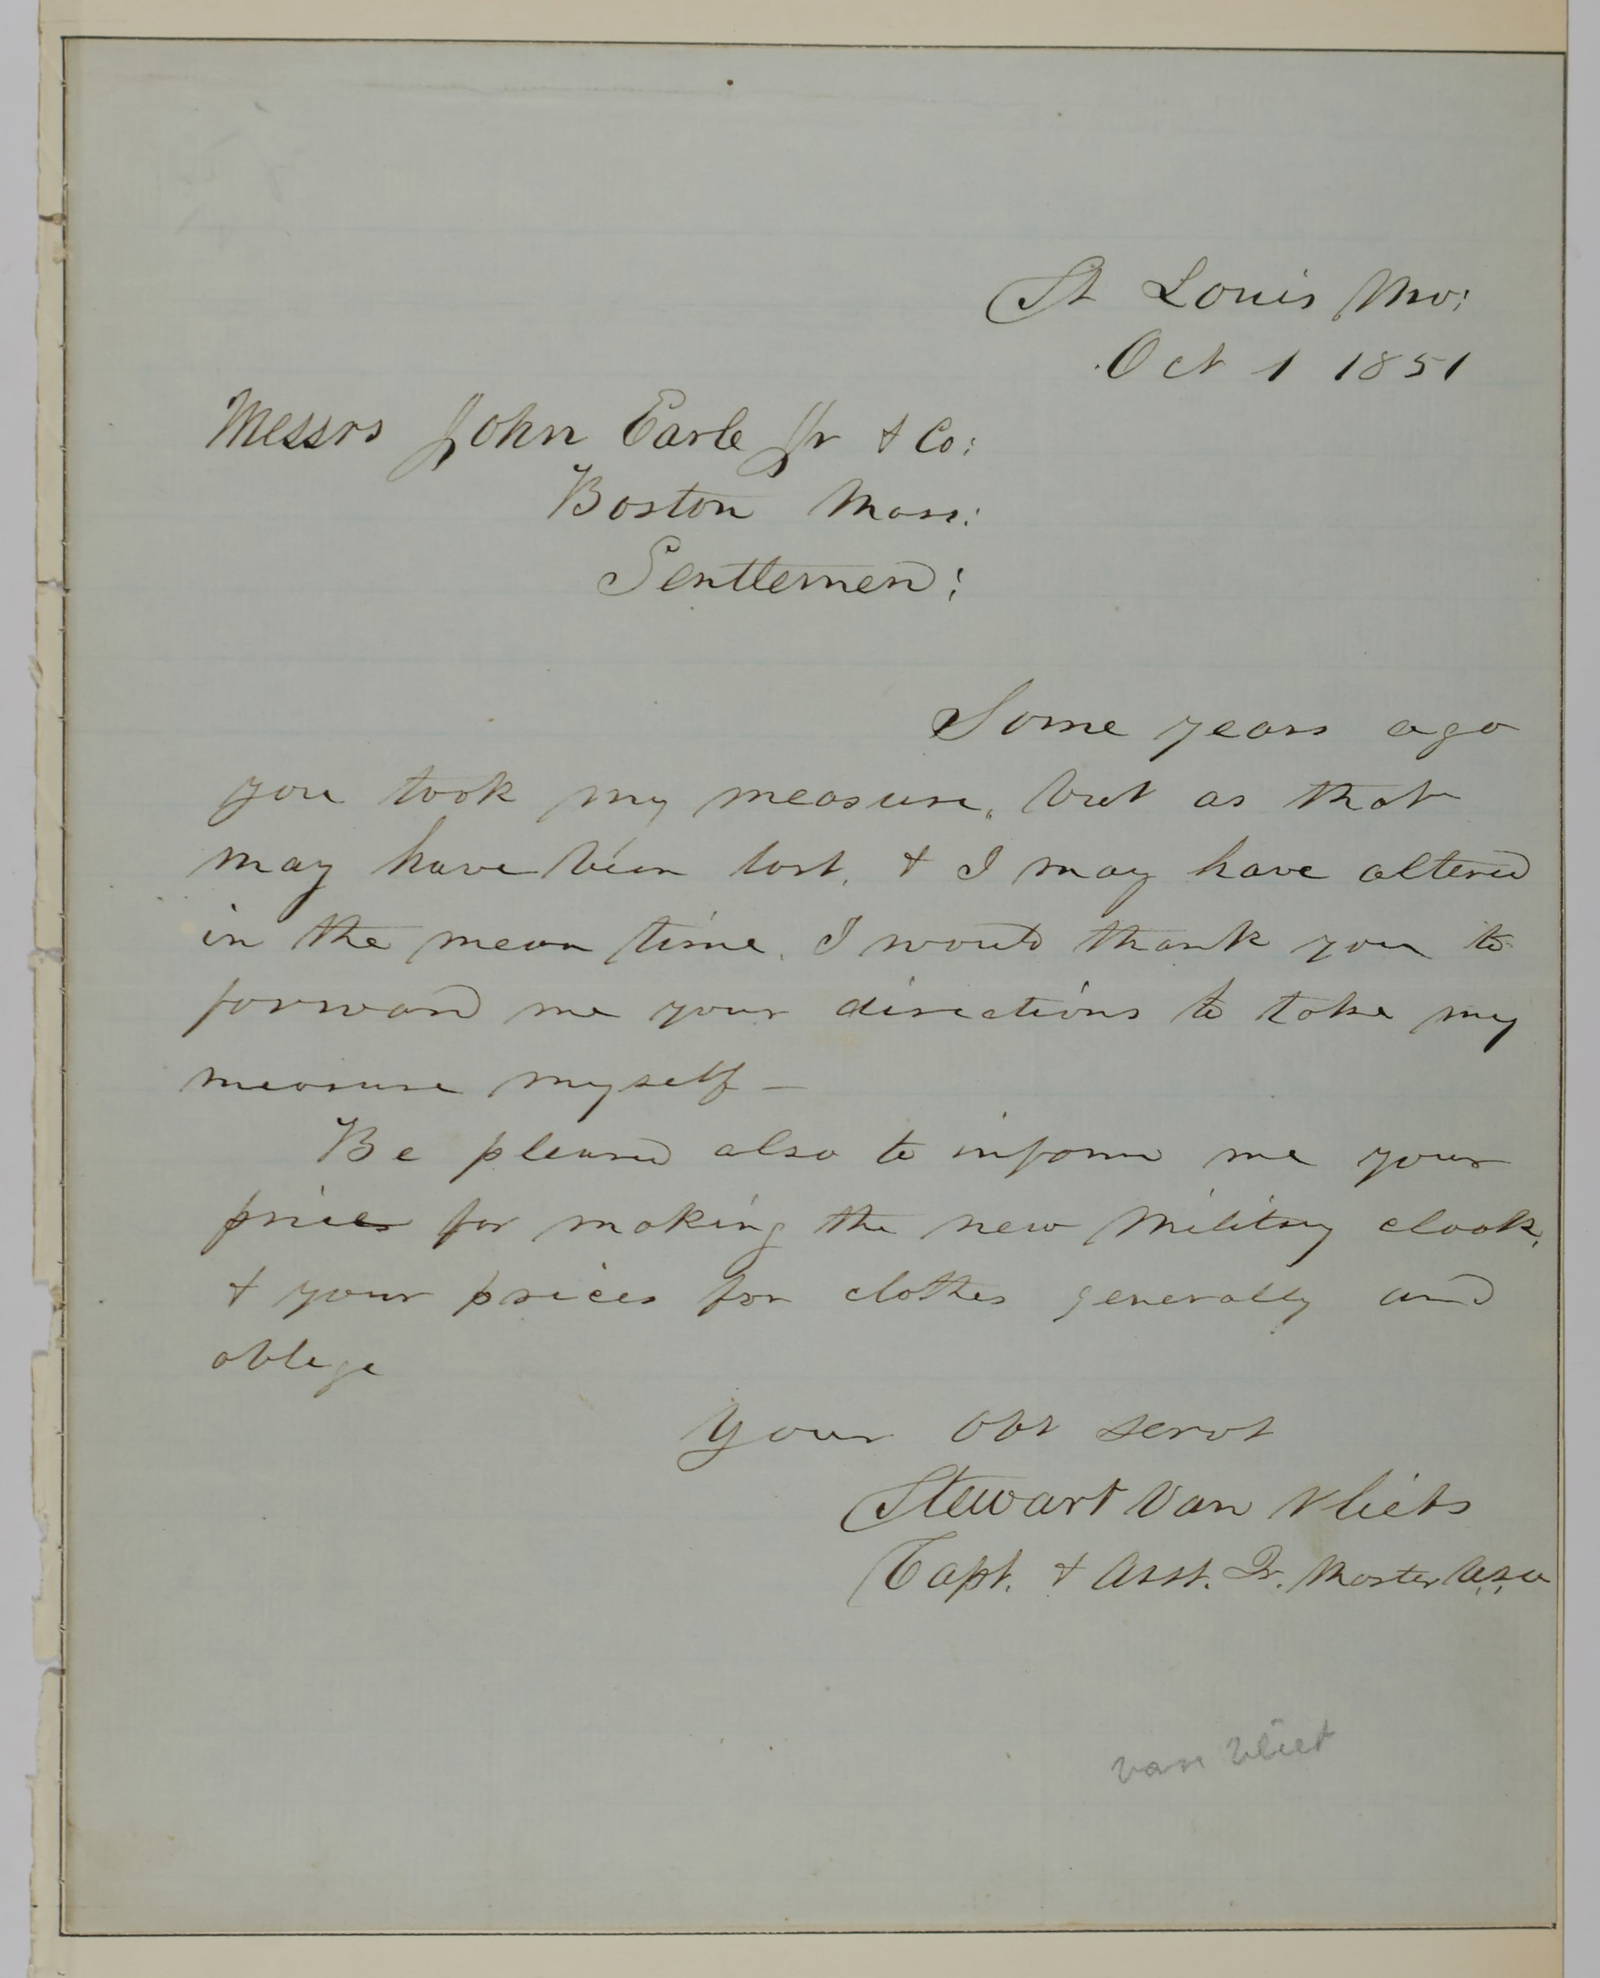 St Louis Mo:
Oct 1 1851
Messrs John Earle Jr & Co:
Boston Mass:
Gentlemen:
Some years ago
you took my measure, but as that
may have been lost, & I may have altered
in the mean time, I would thank you to
forward me your directions to take my
measure myself —
Be pleased also to inform me your
prices for making the new Military cloak,
& your prices for clothes generally and
oblige
Your Obt Servt
Stewart Van Vliet
Capt. & Asst. Qr. Master U.S.A
Van Vliet